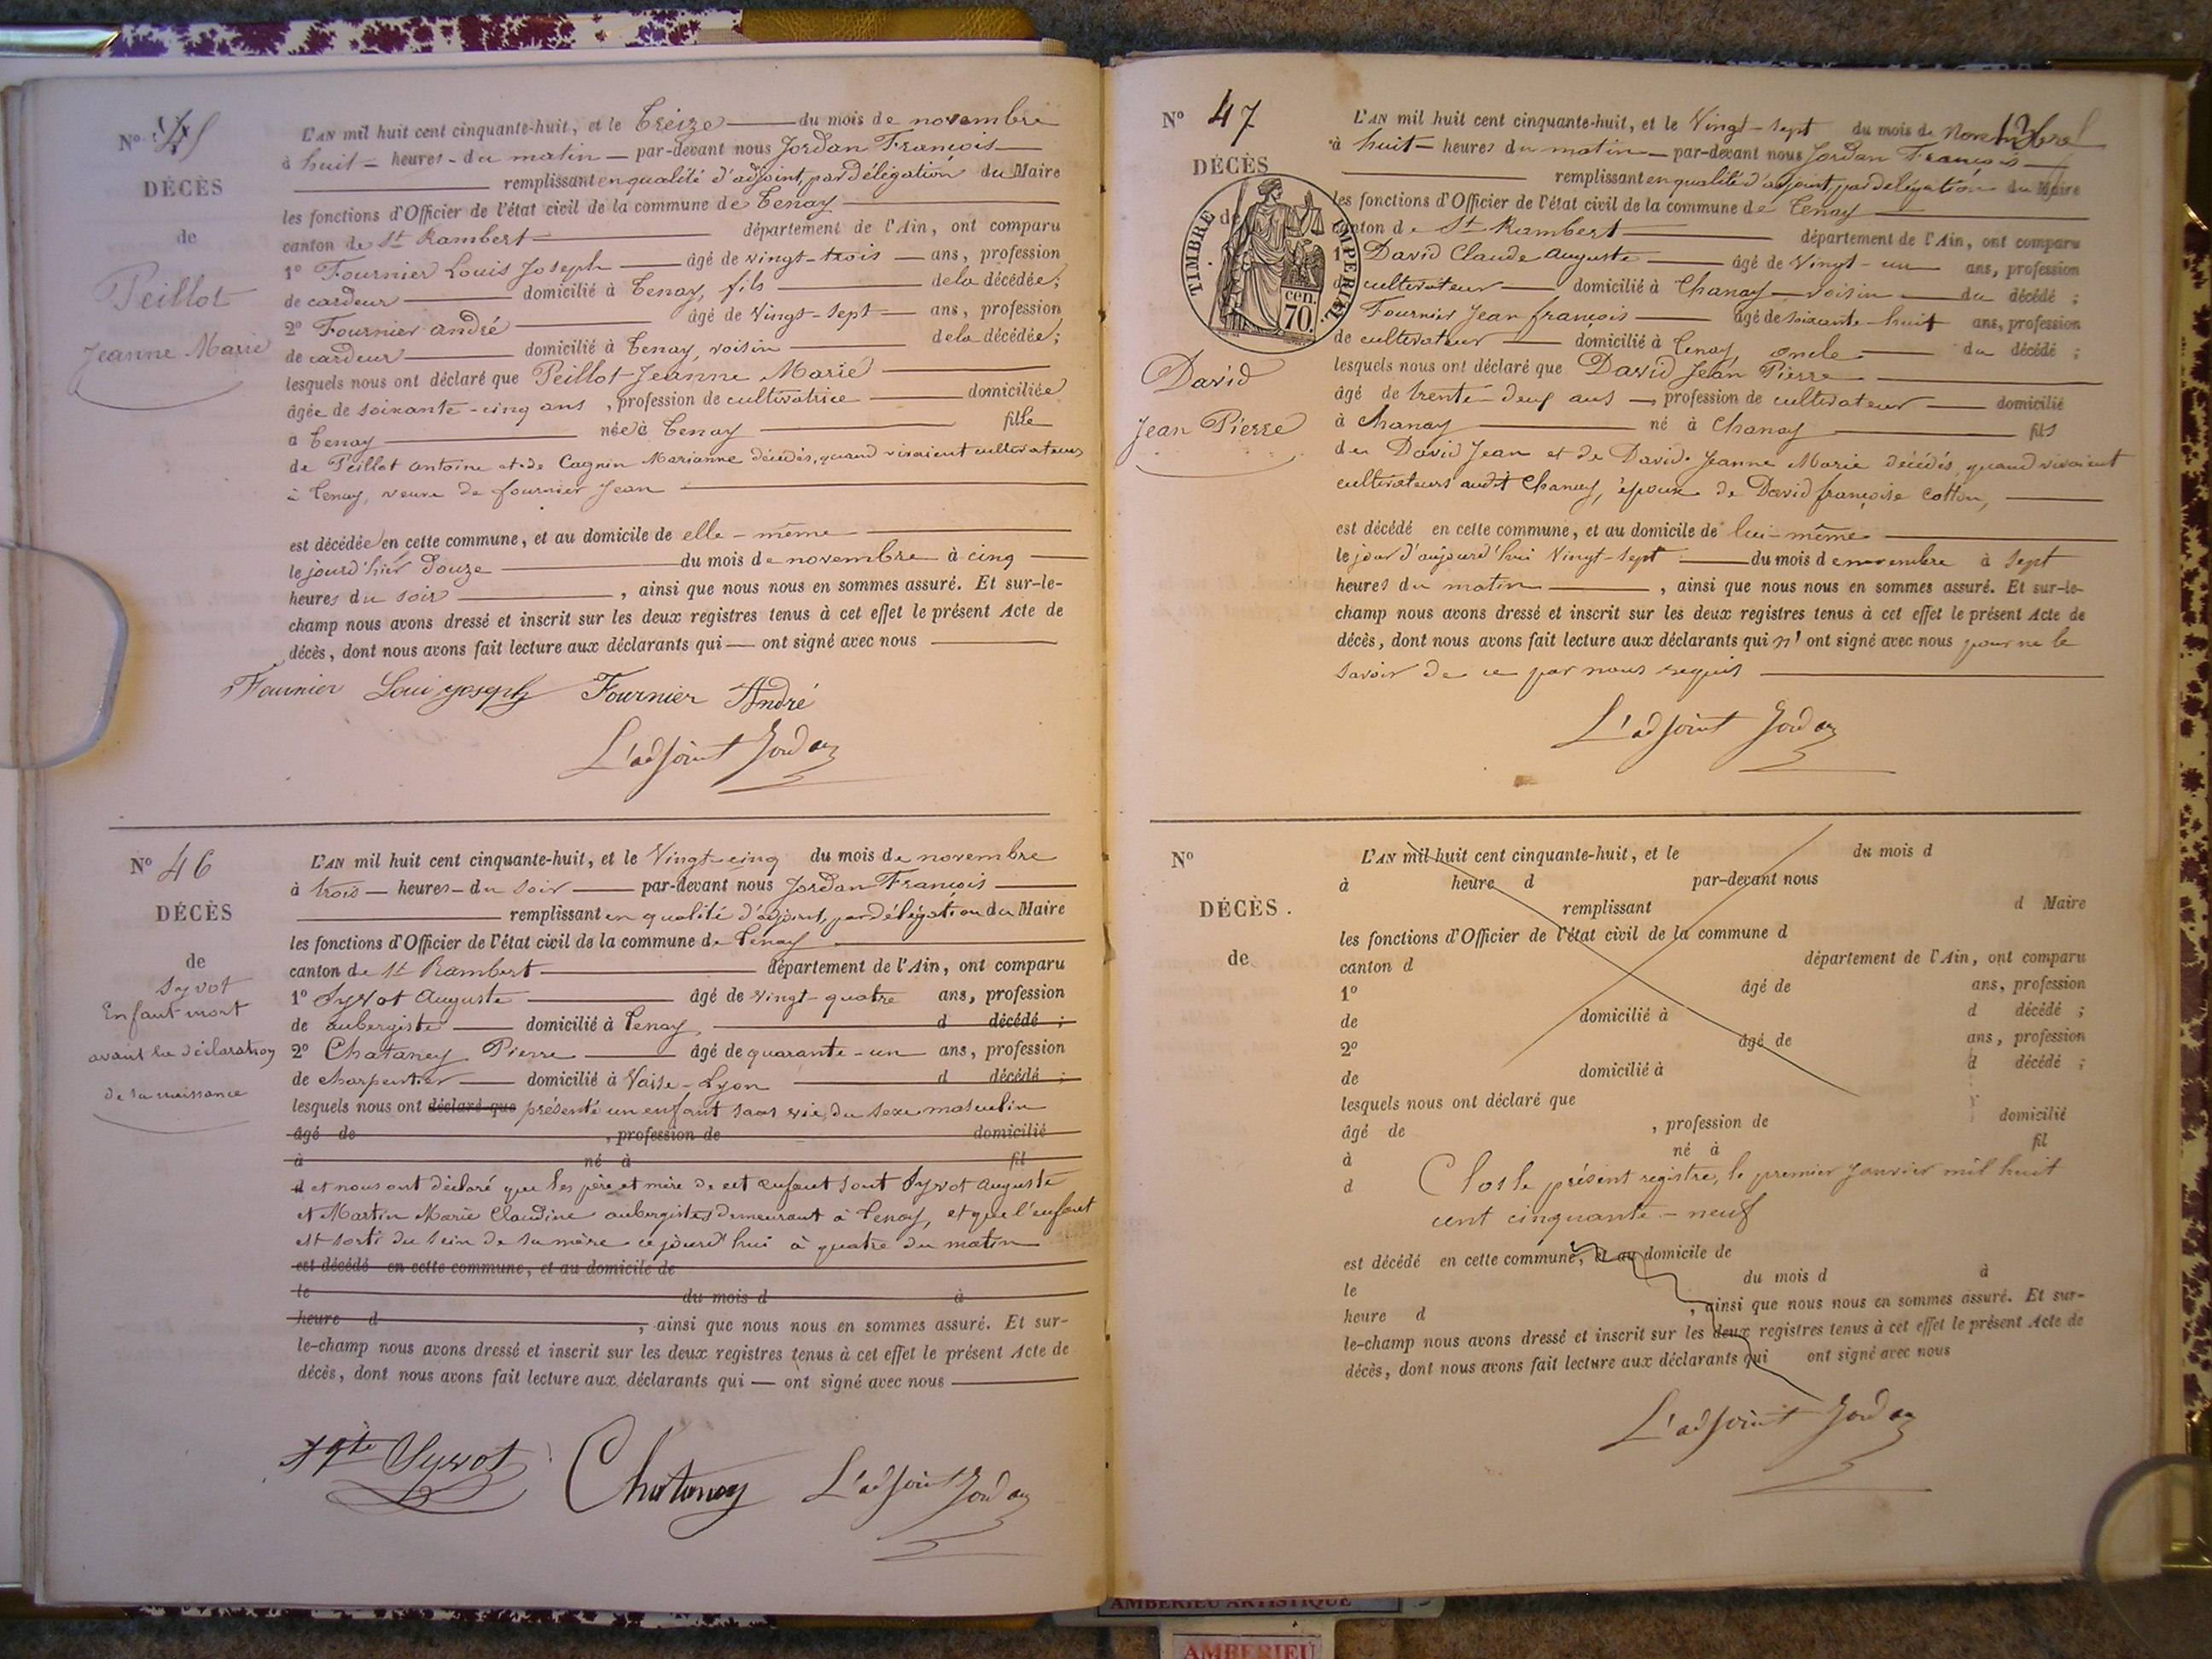 N° 45
DÉCÈS
de
Peillot
Jeanne Marie
L'AN mil huit cent cinquante-huit, et le treize du mois de novembre
à huit heures du matin par-devant nous Jordan François
remplissant en qualité d'adjoint, par délégation du Maire
les fonctions d'Officier de l'état civil de la commune de Tenay
canton de St Rambert département de l'Ain, ont comparu
1° Fournier Louis Joseph âgé de vingt-trois ans, profession
de cardeur domicilié à Tenay, fils de la décédée;
2° Fournier andré âgé de Vingt-sept ans, profession
de cardeur domicilié à Tenay, voisin de la décédée;
lesquels nous ont déclaré que Peillot Jeanne Marie
âgée de soixante-cinq ans, profession de cultivatrice domiciliée
à Tenay née à Tenay fille
de Peillot antoine et de Cagnin Marianne décédés, quand vivaient cultivateurs
à Tenay, veuve de fournier Jean
est décédée en cette commune, et au domicile de elle-même
le jour d'hier douze du mois de novembre à cinq
heures du soir, ainsi que nous nous en sommes assuré. Et sur-le-
champ nous avons dressé et inscrit sur les deux registres tenus à cet effet le présent Acte de
décès, dont nous avons fait lecture aux déclarants qui — ont signé avec nous
Fournier Loui joseph Fournier André
L'adjoint Jordan
N° 46
DÉCÈS
de
Syvot
Enfant mort
avant la déclaration
de sa naissance
L'AN mil huit cent cinquante-huit, et le Vingt-cinq du mois de novembre
à trois heures du soir par-devant nous Jordan François
remplissant en qualité d'adjoint, par délégation du Maire
les fonctions d'Officier de l'état civil de la commune de Tenay
canton de St Rambert département de l'Ain, ont comparu
1° Syvot Auguste âgé de vingt-quatre ans, profession
de aubergiste domicilié à Tenay d décédé ;
2° Chatanay Pierre âgé de quarante-un ans, profession
de charpentier domicilié à Vaise-Lyon d décédé ;
lesquels nous ont déclaré que présenté un enfant sans vie, du sexe masculin
âgé de , profession de domicilié
à né à fil
d et nous ont déclaré que les père et mère de cet enfant sont Syvot Auguste
et Martin Marie Claudine aubergistes demeurant à Tenay, et que l'enfant
est sorti du sein de sa mère cejourd'hui à quatre du matin
est décédé en cette commune, et au domicile de
le du mois d à
heure d , ainsi que nous nous en sommes assuré. Et sur-
le-champ nous avons dressé et inscrit sur les deux registres tenus à cet effet le présent Acte de
décès, dont nous avons fait lecture aux déclarants qui — ont signé avec nous
Agte Syvot Chatanay L'adjoint Jordan
N° 47
DÉCÈS
de
TIMBRE IMPERIAL
cen. 70.
David
Jean Pierre
L'AN mil huit cent cinquante-huit, et le Vingt-sept du mois de Novembre
à huit heures du matin par-devant nous Jordan François
remplissant en qualité d'adjoint, par délégation du Maire
les fonctions d'Officier de l'état civil de la commune de Tenay
canton de St Rambert département de l'Ain, ont comparu
1° David Claude Auguste âgé de Vingt-un ans, profession
de cultivateur domicilié à Chanay voisin du décédé ;
Fournier Jean françois âgé de soixante-huit ans, profession
de cultivateur domicilié à Tenay, oncle du décédé ;
lesquels nous ont déclaré que David Jean Pierre
âgé de trente-deux ans, profession de cultivateur domicilié
à Chanay né à Chanay fils
de David Jean et de David Jeanne Marie décédés, quand vivaient
cultivateurs audit Chanay, époux de David françoise Cotton,
est décédé en cette commune, et au domicile de lui-même
le jour d'aujourd'hui Vingt-sept du mois de novembre à sept
heures du matin, ainsi que nous nous en sommes assuré. Et sur-le-
champ nous avons dressé et inscrit sur les deux registres tenus à cet effet le présent Acte de
décès, dont nous avons fait lecture aux déclarants qui n'ont signé avec nous pour ne le
savoir de ce par nous requis
L'adjoint Jordan
N°
DÉCÈS.
de
L'AN mil huit cent cinquante-huit, et le du mois d
à heure d par-devant nous
remplissant d Maire
les fonctions d'Officier de l'état civil de la commune d
canton d département de l'Ain, ont comparu
1° âgé de ans, profession
de domicilié à d décédé ;
2° âgé de ans, profession
de domicilié à d décédé ;
lesquels nous ont déclaré que
âgé de , profession de domicilié
à né à fil
d Clos le présent registre, le premier Janvier mil huit
cent cinquante-neuf
est décédé en cette commune, et au domicile de
le du mois d à
heure d , ainsi que nous nous en sommes assuré. Et sur-
le-champ nous avons dressé et inscrit sur les deux registres tenus à cet effet le présent Acte de
décès, dont nous avons fait lecture aux déclarants qui ont signé avec nous
L'adjoint Jordan
AMBERIEU ARTISTIQUE
AMBERIEU